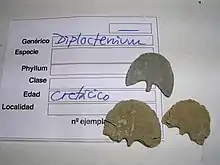 Genérico Diploctenium
Especie
Phyllum
Clase
Edad Cretácico
Localidad
nº ejempla